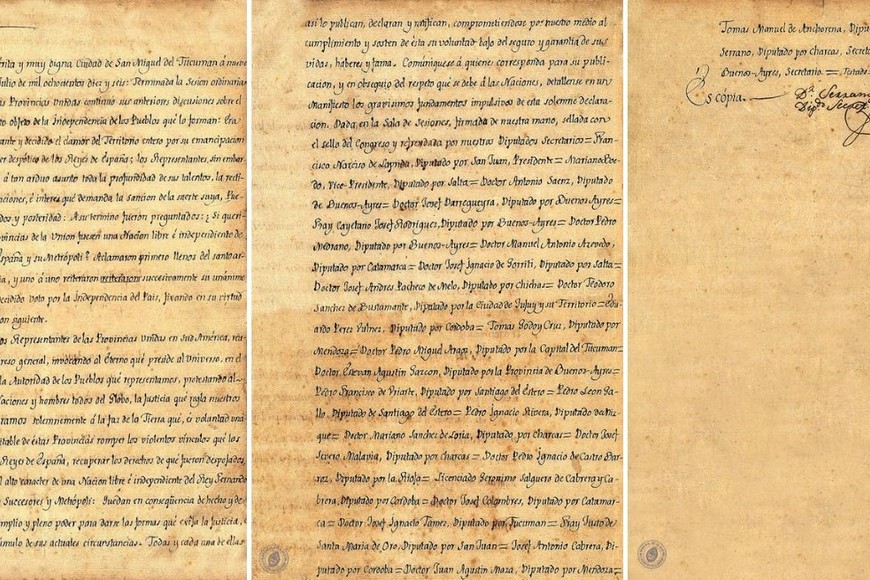 érita y muy digna Ciudad de San Miguel del Tucuman á nueve
Julio de mil ochocientos diez y seis: Terminada la Sesion ordinaria
as Provincias Unidas continuó sus anteriores discusiones sobre el
to objeto de la Independencia de los Pueblos qué lo forman: Era
ante y decidido el clamor del Territorio entero por su emancipacion
er despotico de los Reyes de España; los Representantes, sin embar-
á tan arduo asunto toda la profundidad de sus talentos, la recti-
nciones, é interes qué demanda la sancion de la suerte suya, Pue-
dos y posteridad: A su termino fueron preguntados: ¿ Si queri-
vincias de la Union fuesen una Nacion libre é independiente de
España y su Metrópoli? Aclamaron primero llenos del santo ar-
ia, y uno á uno reiteraron reiteraron sucesivamente su unánime
decidido voto por la Independencia del Pais, fixando en su virtud
on siguiente.
os Representantes de las Provincias unidas en sud América, reu-
greso general, invocando al Eterno qué preside al Universo, en el
la Autoridad de los Pueblos qué representamos, protestando al-
Naciones y hombres todos del Globo, la Justicia qué regla nuestros
ramos solemnemente á la faz de la Tierra qué, es voluntad una-
itable de éstas Provincias romper los violentos vinculos qué los
Reyes de España, recuperar los derechos de qué fueron despojados,
el alto carácter de una Nacion libre é independiente del Rey Fernando
Succesores y Metrópoli: Quedan en conseqüencia de hecho y de
amplio y pleno poder para darse las formas qué exija la Justicia, é
úmulo de sus actuales circunstancias. Todas y cada una de ellas
asi lo publican, declaran y ratifican, comprometiendose por nuestro medio al
cumplimiento y sosten de ésta su voluntad baxo del seguro y garantia de sus
vidas, haberes y fama. Comúniquese á quienes corresponda para su publi-
cacion, y en obsequio del respeto qué se debe á las Naciones, detallense en un
Manifiesto los gravisimos fundamentos impulsivos de esta solemne declara-
cion. Dada en la Sala de Sesiones, firmada de nuestra mano, sellada con
el sello del Congreso y refrendada por nuestros Diputados Secretarios = Fran-
cisco Narciso de Laprida, Diputado por San Juan, Presidente = Mariano Boe-
do, Vice-Presidente, Diputado por Salta = Doctor Antonio Saenz, Diputado
de Buenos-Ayres = Doctor Josef Darregueyra, Diputado por Buenos-Ayres =
Fray Cayetano Josef Rodriguez, Diputado por Buenos-Ayres = Doctor Pedro
Medrano, Diputado por Buenos-Ayres = Doctor Manuel Antonio Azevedo,
Diputado por Catamarca = Doctor Josef Ignacio de Gorriti, Diputado por Salta =
Doctor Josef Andres Pacheco de Melo, Diputado por Chichas = Doctor Teodoro
Sanchez de Bustamante, Diputado por la Ciudad de Jujuy y su Territorio = Edu-
ardo Perez Pulnes, Diputado por Cordoba = Tomas Godoy Cruz, Diputado por
Mendoza = Doctor Pedro Miguel Araoz, Diputado por la Capital del Tucuman =
Doctor Estevan Agustin Gazcon, Diputado por la Provincia de Buenos-Ayres =
Pedro Francisco de Uriarte, Diputado por Santiago del Estero = Pedro Leon Ga-
llo, Diputado de Santiago del Estero = Pedro Ignacio Rivera, Diputado de Miz-
que = Doctor Mariano Sanchez de Loria, Diputado por Charcas = Doctor Josef
Severo Malavia, Diputado por Charcas = Doctor Pedro Ignacio de Castro Bar-
ros, Diputado por la Rioja = Licenciado Geronimo Salguero de Cabrera y Ca-
brera, Diputado por Cordoba = Doctor Josef Colombres, Diputado por Catamar-
ca = Doctor Josef Ignacio Tames, Diputado por Tucuman = Fray Justo de
Santa Maria de Oro, Diputado por San Juan = Josef Antonio Cabrera, Di-
putado por Cordoba = Doctor Juan Agustin Maza, Diputado por Mendoza =
Tomas Manuel de Anchorena, Diput
Serrano, Diputado por Charcas, Secret
Buenos-Ayres, Secretario =
Es cópia.
Dr. Serrano
Dip.do Secret.